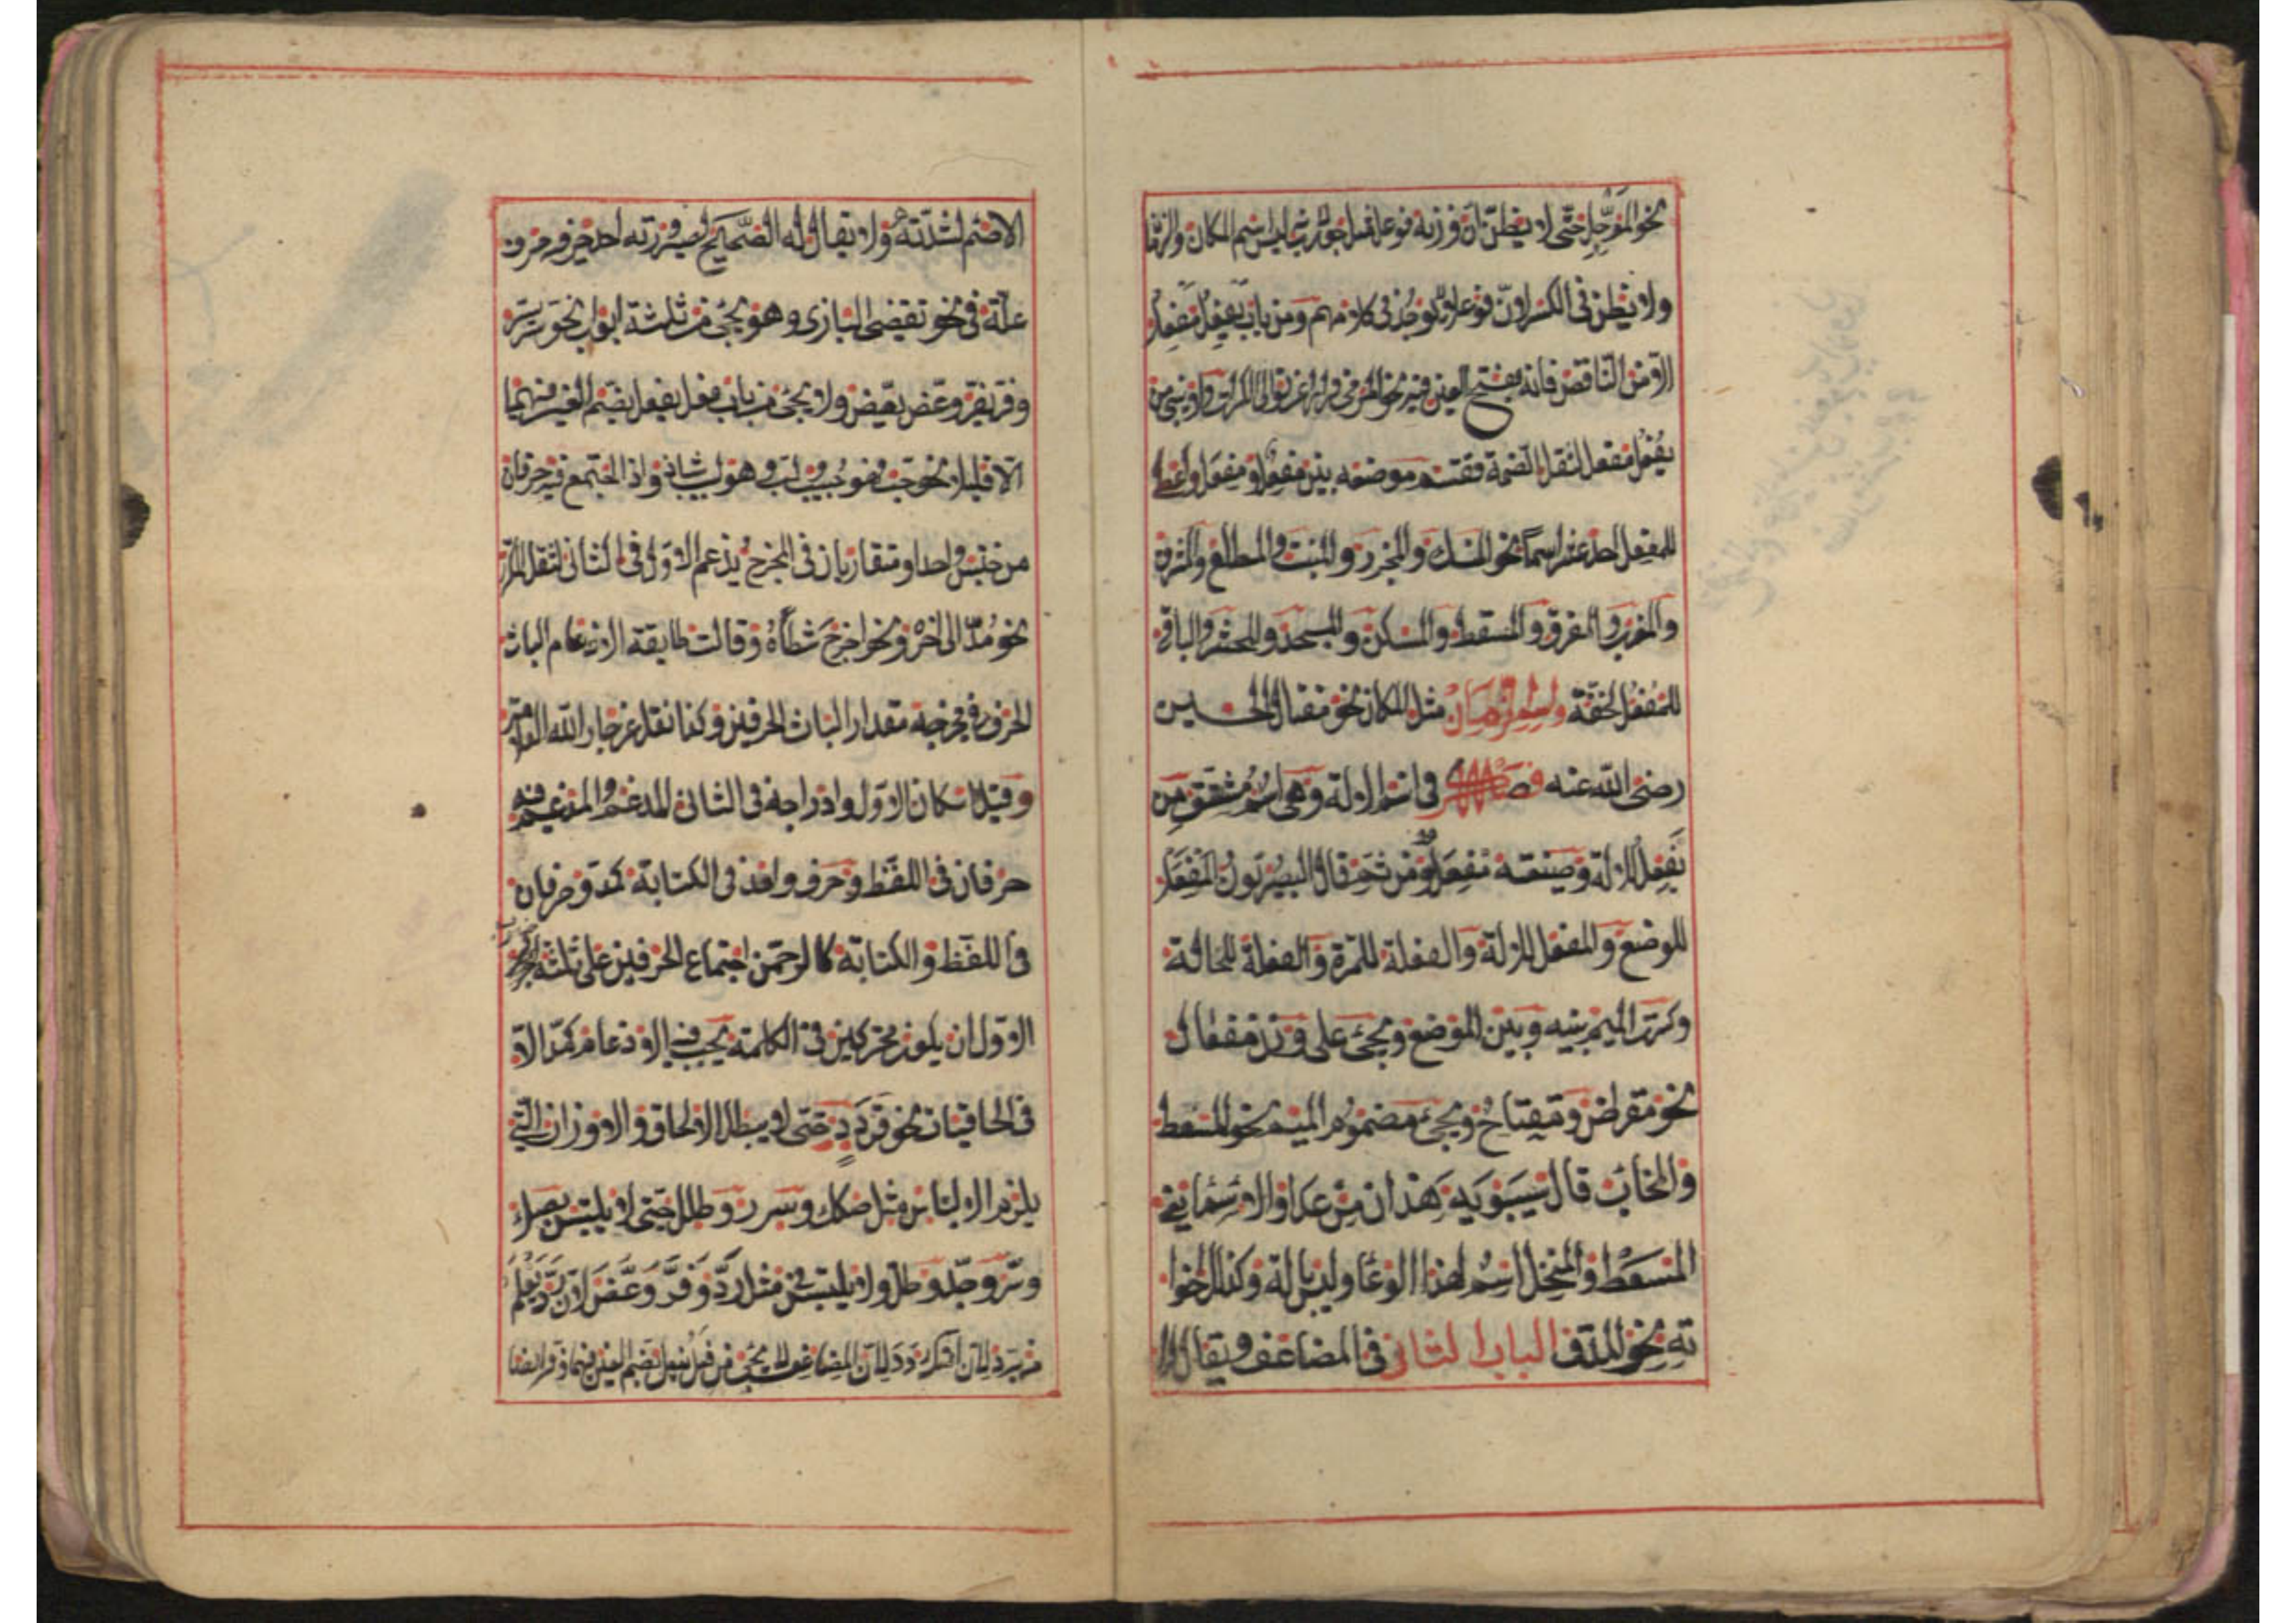 نحو الموجل حتى لا يظن ان وزنه فوعل مثل جورب ليس اسم المكان والزما
ولا يظن فى الكسر لان فوعل لا يوجد فى كلامهم ومن باب يفعل مفعل
الا من الناقص فانه بفتح العين فيه نحو المرمى ولا يبنى من
يفعل مفعل لثقل الضمة فقسم موضعه بين مفعل ومفعل واعطى
للمفعل احد عشر اسما نحو المنسك والمجزر والمنبت والمطلع والمشرق
والمغرب والمفرق والمسقط والمسكن والمسجد والمحشر والباقى
للمفعل لخفة واسم الزمان مثل المكان نحو مقتل الحسين
رضى الله عنه فصل فى اسم الالة وهى اسم مشتق من
يفعل للالة وصيغته مفعل ومن ثم قال البصريون المفعل
للموضع والمفعل للالة والفعلة للمرة والفعلة للحالة
وكسرت الميم بينه وبين الموضع ويجئ على وزن مفعال
نحو مقراض ومفتاح ويجئ مضموم الميم نحو المسعط
والمخل قال سيبويه هذان من عداد الاسما يعنى
المسعط والمنخل اسم لهذا الوعا وليس بالة وكذلك اخوا
ته نحو المدق الباب الثانى فى المضاعف ويقال له
الاصم لشدته ولا يقال له الصحيح لصيرورته احد حرفيه حرف
علة فى نحو تقضى البازى وهو يجئ من ثلثة ابواب نحو سر يسر
وفر يفر وعض يعض ولا يجئ من باب فعل يفعل بضم العين فيهما
الا قليلا نحو حب فهو حبيب ولب فهو لبيب واذا اجتمع فيه حرفان
من جنس واحد او متقاربان فى المخرج يدغم الاول فى الثانى لثقل المكرر
نحو مد الى اخره ونحو اخرج شطأه وقالت طايفة الادغام الباث
الحرف فى مخرجه مقدار الباث الحرفين وكذا نقل عن جار الله العلامة
وقيل اسكان الاول وادراجه فى الثانى المدغم والمدغم فيه
حرفان فى اللفظ وحرف واحد فى الكتابة كمد وحرفان
فى اللفظ والكتابة كالرحمن اجتماع الحرفين على ثلثة
الاول ان يكون محركين فى الكلمة يجب فيه الادغام كمد الا
فى الحاقيات نحو قردد حتى لا يبطل الالحاق والاوزان التى
يلزم الالتباس مثل صكك وسرر وطلل حتى لا يلتبس بصك
وسر وجد وطل ولا يلتبس فى مثل رد وفر وعض لان رد يعلم
من يرد لان المضاعف لا يجئ من فعل يفعل بضم العين فيهما وفر ايضا